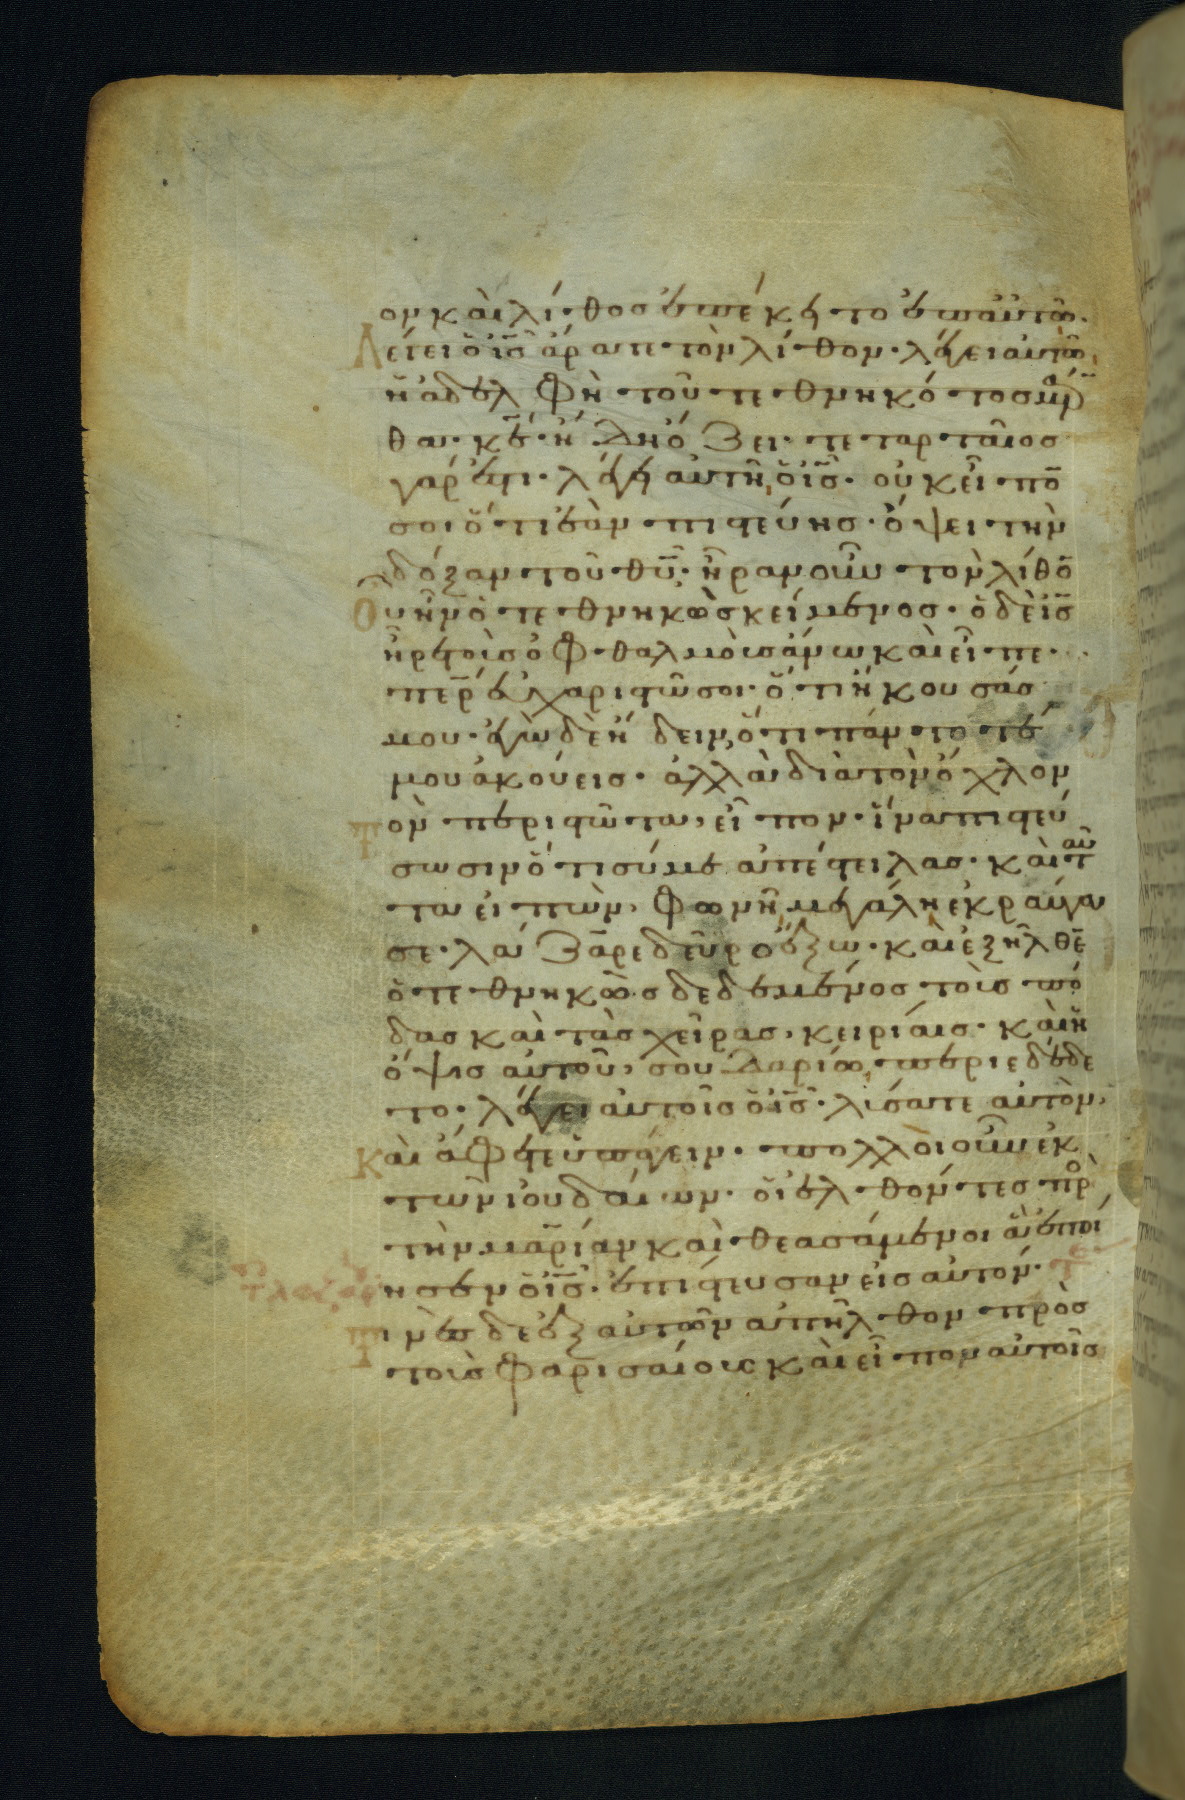 ον καὶ λίθος ἐπέκειτο ἐπ αὐτῶ.
Λέγει ὁ ις ἄρατε τὸν λίθον. λέγει αὐτῶ
ἡ ἀδελφὴ τοῦ τεθνηκότος μάρ
θα. κε ἤδη ὄζει. τεταρταῖος
γάρ ἐστι. λέγει αὐτῆ ὁ ις. οὐκ εἶπό
σοι ὅτι ἐὰν πιστεύησ. ὄψει τὴν
δόξαν τοῦ θυ. ἦραν οὖν τὸν λίθο
Οὗ ἦν ὁ τεθνηκὼς κείμενος. ὁ δὲ ις
ἦρε τοὺς ὀφθαλμοὺς ἄνω καὶ εἶπε.
περ εὐχαριστῶ σοι. ὅτι ἤκουσάς
μου. ἐγὼ δὲ ἤδειν, ὅτι πάντοτέ
μου ἀκούεις. ἀλλὰ διὰ τὸν ὄχλον
τὸν περιεστῶτα, εἶπον. ἵνα πιστεύ
σωσιν ὅτι σύ με ἀπέστειλας. καὶ ταῦ
τα εἰπὼν, φωνῆ μεγάλη ἐκραύγα
σε. λάζαρε δεῦρο ἔξω. καὶ ἐξῆλθε
ὁ τεθνηκὼς δεδεμένος τοὺς πό
δας καὶ τὰς χεῖρας, κειρίαις. καὶ ἡ
ὄψις αὐτοῦ, σουδαρίω περιεδέδε
το. λέγει αὐτοῖς ὁ ις. λύσατε αὐτὸν,
Καὶ ἄφετε ὑπάγειν. πολλοὶ οὖν ἐκ
τῶν ἰουδαίων. οἱ ἐλθόντες πρὸ
τὴν μαρίαν καὶ θεασάμενοι ἃ ἐποί
ησεν ὁ ις. ἐπίστευσαν εἰς αὐτόν.
Τινὲς δὲ ἐξ αὐτῶν ἀπῆλθον πρὸς
τοὺς φαρισαίους καὶ εἶπον αὐτοῖς